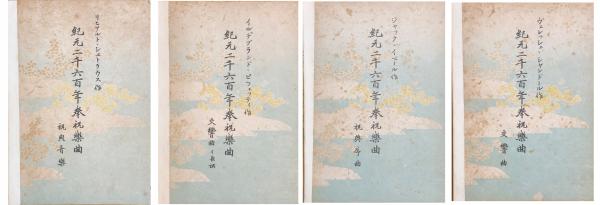 リヒアルト・シュトラウス作
紀元二千六百年奉祝樂曲
祝典音樂
イルデブランド・ピツェッティ作
紀元二千六百年奉祝樂曲
交響曲イ長調
ジャック・イベール作
紀元二千六百年奉祝樂曲
祝典序曲
ヴェレッシュ・シャンドール作
紀元二千六百年奉祝樂曲
交響曲